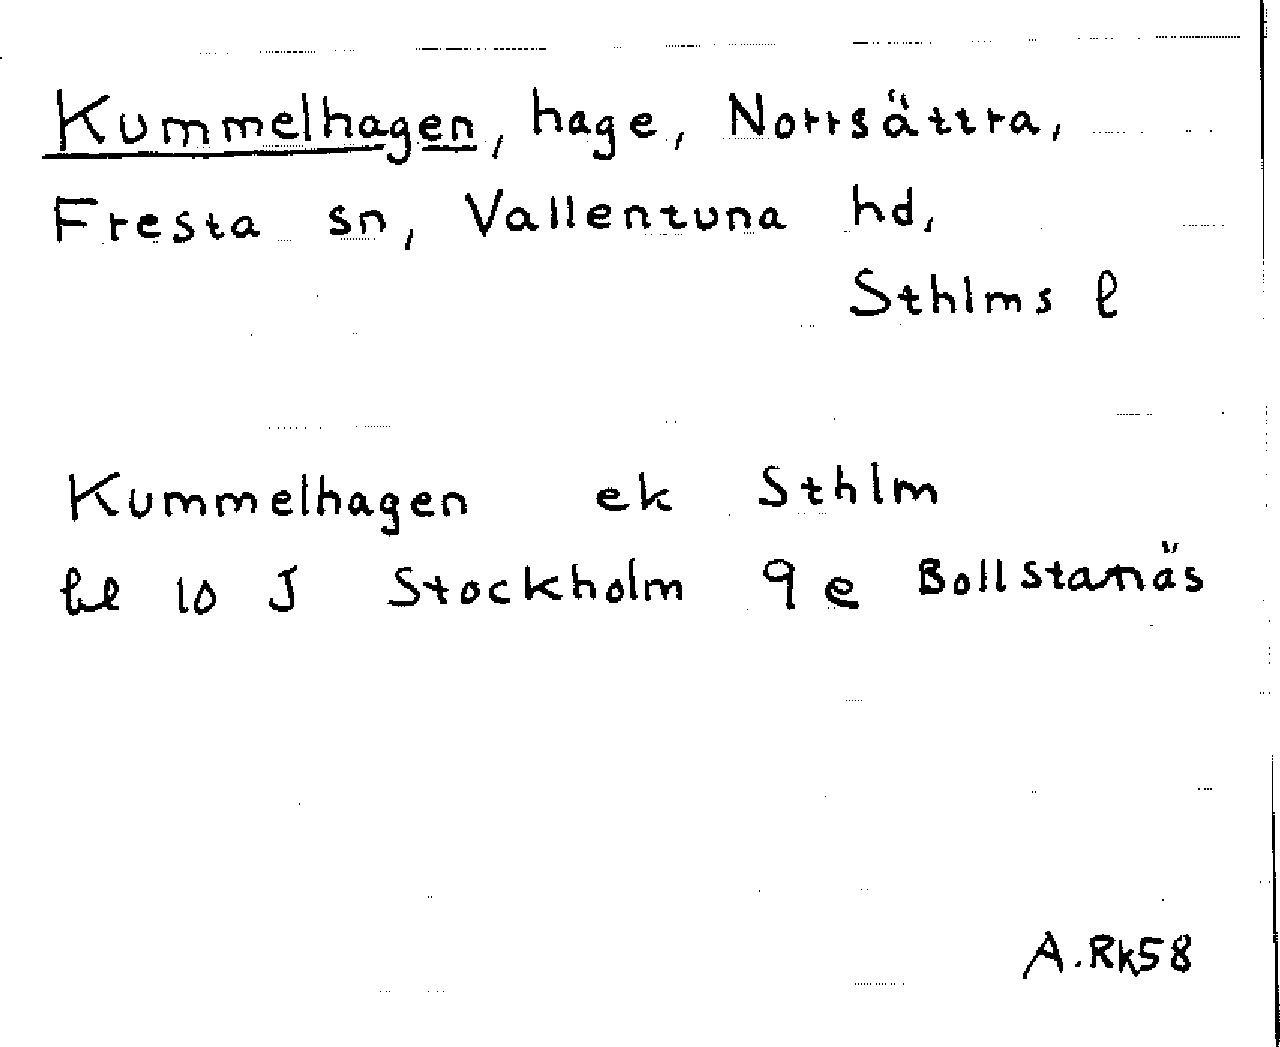 Kummelhagen, hage, Norrsättra,
Fresta sn, Vallentuna hd,
Sthlms l
Kummelhagen ek Sthlm
bl 10 J Stockholm 9 e Bollstanäs
A.Rk58